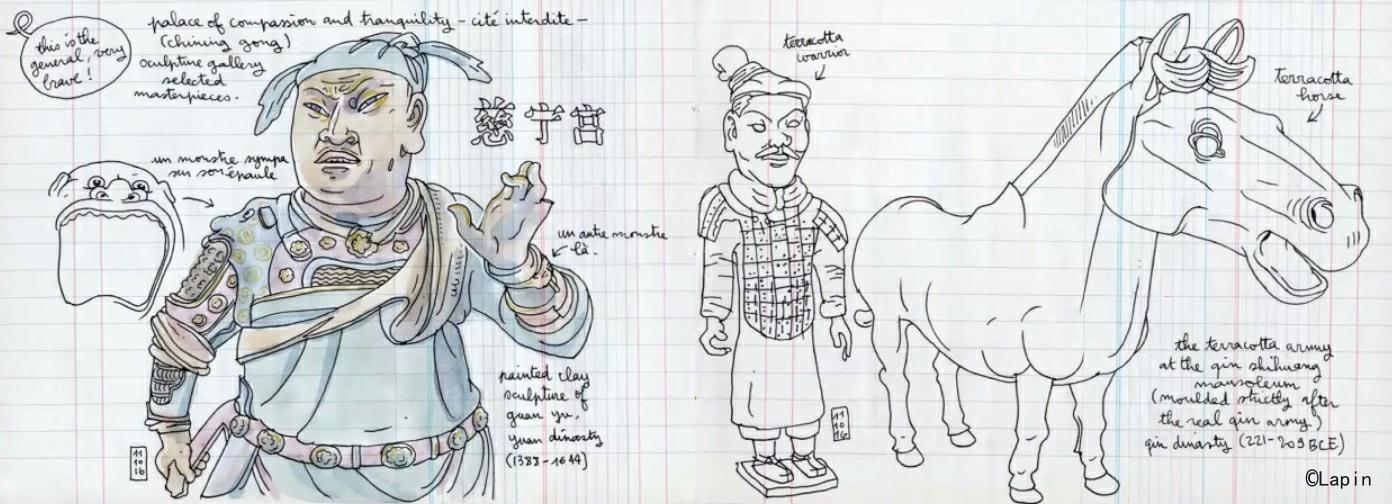 this is the
general, very
brave!
palace of compassion and tranquility - cité interdite -
(chining gong)
sculpture gallery
selected
masterpieces.
慈宁宫
un monstre sympa
sur son épaule
un autre monstre
là.
painted clay
sculpture of
guan yu,
yuan dinasty
(1388-1644)
11
10
16
terracotta
warrior
terracotta
horse
11
10
16
the terracotta army
at the qin shihuang
mausoleum
(moulded strictly after
the real qin army)
qin dinasty (221-209 BCE)
©Lapin